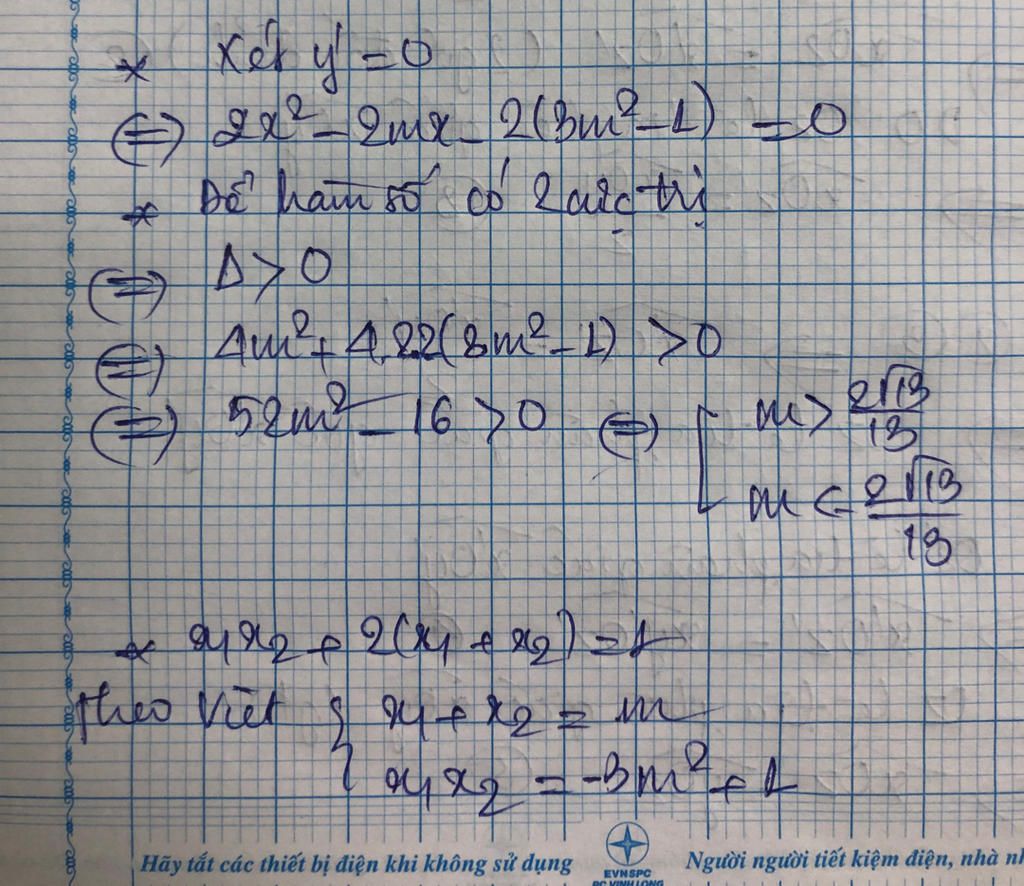 * Xét y' = 0
(=) 2x² - 2mx - 2(3m² - 1) = 0
* Để hàm số có 2 cực trị
(=) Δ > 0
(=) 4m² + 4.2.2(3m² - 1) > 0
(=) 52m² - 16 > 0 (=) [ m > 2√13/13
m < -2√13/13
* x₁x₂ + 2(x₁ + x₂) = 1
Theo Viét { x₁ + x₂ = m
x₁x₂ = -3m² + 1
Hãy tắt các thiết bị điện khi không sử dụng
EVNSPC
PC VINH LONG
Người người tiết kiệm điện, nhà